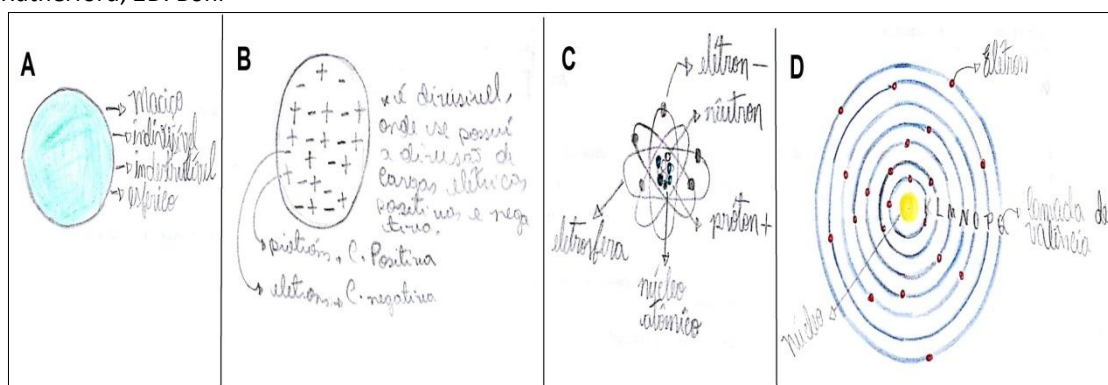 A
→ Maciço
→ indivisível
→ indestrutível
→ esférico
B
* é divisivel,
onde se possui
a divisão de
cargas elétricas
positivas e nega
tiva.
C. Positiva
eletrons → C. negativa
C
elétron -
nêutron
próton +
eletrosfera
núcleo
atômico
D
Elétron
K L M N O P Q
camada de
valência
núcleo